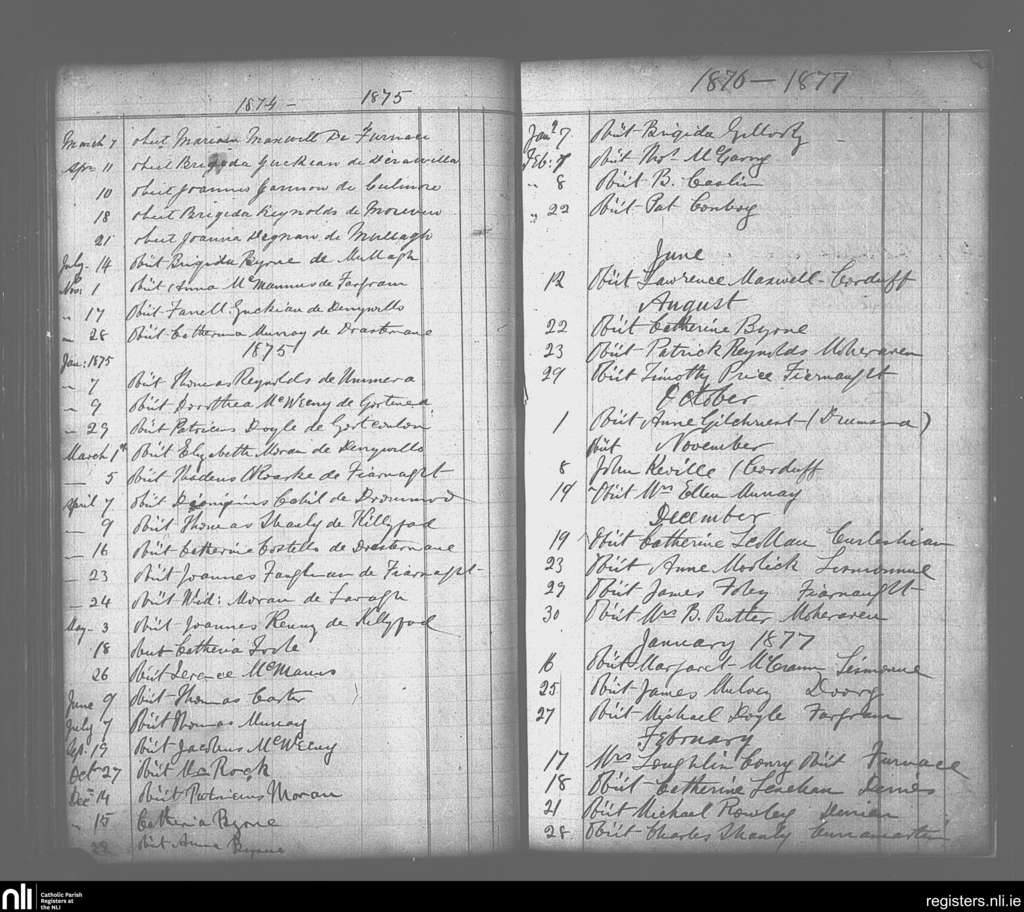 1874 - 1875
March 7 obiit Mariana Maxwell De Furnace
Apr 11 obiit Brigida Guckian de Derawilla
10 obiit Joannes Gannon de Culmore
18 obiit Brigida Reynolds de
21 obiit Joanna Degnan de Mullagh
July 14 Obiit Brigida Byrne de Mullagh
Nov: 1 Obiit Anna McManus de Fargram
" 17 Obiit Farrell Guckian de Derrywillo
" 28 Obiit Catherina Murray de Drasternane
1875
Jan: 1875
" 7 Obiit Thomas Reynolds de Ummera
" 9 Obiit Dorothea McWeeny de
" 29 Obiit Patricius Doyle de
March 1st Obiit Elizabeth Moran de Derrywillo
" 5 Obiit Thadeus ORoarke de Fiarnaght
April 7 Obiit Dionigius Cahil de
" 9 Obiit Thomas Shanly de Killyfad
" 16 Obiit Catherine Costello de Drasternane
" 23 Obiit Joannes Faughnan de Fiarnaght
" 24 Obiit Wid: Moran de Laragh
May 3 Obiit Joannes Kenny de Killyfad
18 Obiit Catheria Toole
26 Obiit Terence McManus
June 9 Obiit Thomas Carter
July 7 Obiit Thomas Murray
Sept. 19 Obiit Jacobus McWeeny
Octr 27 Obiit
Decr 14 Obiit Patricius Moran
" 15 Catheria Byrne
22 Obiit Anna Byrne
1876 — 1877
Jany 7. Obiit Brigida
Feb: 7 Obiit Thos. McGarry
" 8 Obiit B. Caslin
" 22 Obiit Pat Conboy
June
12 Obiit Lawrence Maxwell - Corduff
August
22 Obiit Catherine Byrne
23 Obiit Patrick Reynolds Moheraven
29 Obiit Timothy Price Fiarnaught
October
1 Obiit Anne Gilchriest (Drumana)
Obiit November
8 John Keville (Corduff
19 Obiit Mrs Ellen Murray
December
19 Obiit Catherine
23 Obiit Anne
29 Obiit James Foley Fiarnaught
30 Obiit Mrs B. Butler Moheraven
January 1877
16 Obiit Margaret McCrann Lismoune
25 Obiit James Mulvey
27 Obiit Michael Doyle Fargram
February
17 Mrs Loughlin Conry Obiit Furnace
18 Obiit Catherine Lenehan
21 Obiit Michael Rowley
28 Obiit Charles Shanly
nli
Catholic Parish
Registers at
the NLI
registers.nli.ie